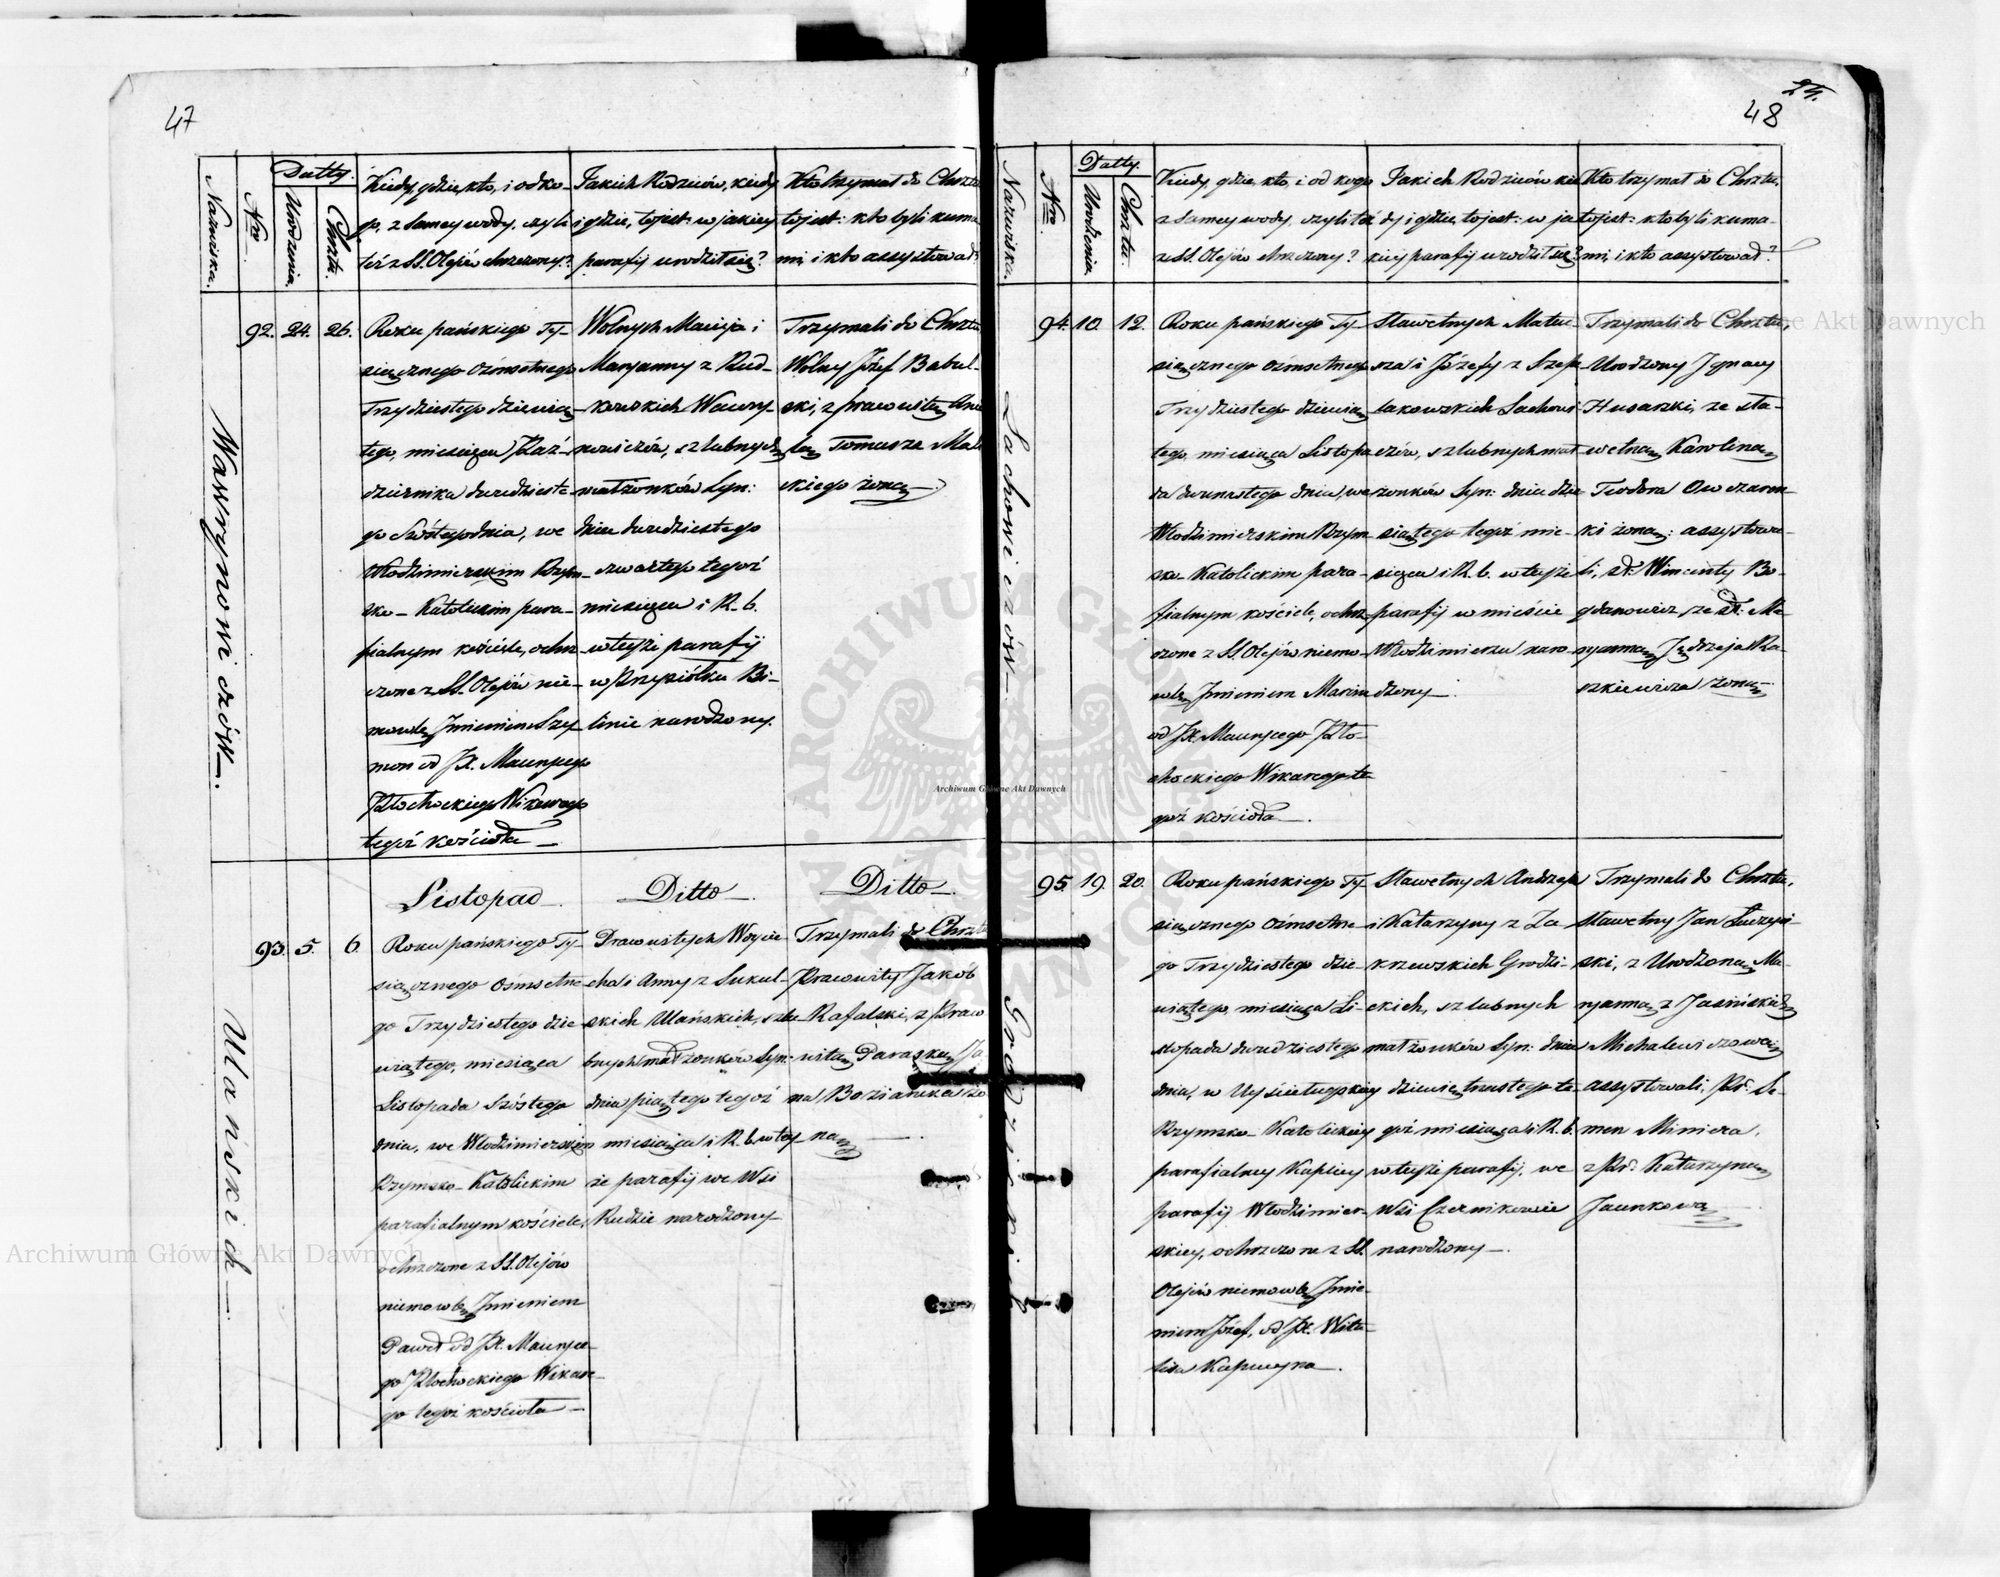 47
Nazwiska.
Nro
Datty.
Urodzenia.
Chrztu.
Kiedy, gdzie, kto, i od ko-
go, z Samey wody, czyli
też z SS. Olejów chrzczony?
Jakich Rodziców, kiedy
i gdzie, to jest: w jakiey
parafij urodził się?
Kto trzymał do Chrztu
to jest: kto byli kuma
mi, i kto assystował?
Wawrynowiczów.
92. 24. 26.
Roku pańskiego Ty-
siącznego ośmsetnego
Trzydziestego dziewią-
tego, miesiąca Paź-
dziernika dwudzieste-
go Szóstego dnia, we
Włodzimierskim Rzym-
sko-Katolickim para-
fialnym kościele, ochrz-
czone z SS. Olejów nie-
mowlę Imieniem Szy-
mon od JX. Maurycego
Kłochockiego Wikarego
tegóż kościoła
Wolnych Macieja i
Maryanny z Rud-
kowskich Wawry-
nowiczów, szlubnych
małżonków Syn:
dnia dwudziestego
czwartego tegoż
miesiąca i R. b.
w teyże parafij
w Przysiółku Bi-
linie narodzony.
Trzymali do Chrztu
Wolny Józef Babul-
ski, z prawowitą
Tomasza
ckiego żoną
Listopad
Ditto
Ditto
Ulańskich
93. 5. 6
Roku pańskiego Ty-
siącznego ośmsetne-
go Trzydziestego dzie-
wiątego, miesiąca
Listopada Szóstego
dnia, we Włodzimierskim
Rzymsko-Katolickim
parafialnym kościele,
ochrzczone z SS. Olejów
niemowlę Imieniem
Paweł od JX. Mauryce-
go Kłochockiego Wikare-
go tegoż kościoła
Prawowitych Woycie-
cha i Anny z Sukul-
skich Ulańskich, szlu-
bnych małżonków Syn:
dnia piątego tegoż
miesiąca i R. b. w tey-
że parafij we Wsi
Rudzie narodzony
Trzymali do Chrztu
Prawowity Jakób
Rafalski, z Prawo
witą Paraską Ja
na Bozianka żo
ną
24.
48
Nazwiska.
Nro
Datty.
Urodzenia.
Chrztu.
Kiedy, gdzie, kto, i od kogo
z Samey wody, czyli też
z SS. Olejów chrzczony?
Jakich Rodziców kie
dy i gdzie, to jest: w ja
kiey parafij urodził się?
Kto trzymał do Chrztu,
to jest: kto byli kuma-
mi, i kto assystował?
Lachowiczów
94. 10. 12.
Roku pańskiego Ty-
siącznego ośmsetnego
Trzydziestego dziewią-
tego, miesiąca Listopa
da dwunastego dnia, we
Włodzimierskim Rzym-
sko-Katolickim para-
fialnym kościele, ochrz-
czone z SS. Olejów niemo-
wlę Imieniem Marcin
od JX. Maurycego Kło-
chockiego Wikarego te-
goż kościoła
Sławetnych Mateu-
sza i Józefy z Szep-
takowskich Lachowi-
czów, szlubnych mał-
żonków Syn: dnia dzie
siątego tegoż mie-
siąca i R. b. w teyże
parafij w mieście
Włodzimierzu naro-
dzony
Trzymali do Chrztu,
Urodzony Ignacy
Husarski, ze sła-
wetną Karoliną
Teodora Owczarew-
ki żoną: assystowa-
li, sł: Wincenty Bo-
gdanowicz, ze sł: Ma-
ryanną Jędrzeja Ra-
szkiewicza żoną
Grodzickich
95. 19. 20.
Roku pańskiego Ty-
siącznego ośmsetne-
go Trzydziestego dzie-
wiątego, miesiąca Li-
stopada dwudziestego
dnia, w Uyściługskiey
Rzymsko-Katolickiey
parafialney Kaplicy
parafij Włodzimier-
skiey, ochrzczone z SS.
Olejów niemowlę Imie-
niem Józef, od JX. Wita-
lisa Kapucyna.
Sławetnych Andrzeja
i Katarzyny z Za-
krzewskich Grodzi-
ckich, szlubnych
małżonków Syn: dnia
dziewiętnastego te-
goż miesiąca i R. b.
w teyże parafij, we
Wsi Czernikowie
narodzony
Trzymali do Chrztu,
sławetny Jan
ski, z Urodzoną Ma-
ryanną z Jasińskich
Michalewiczową
assystowali, Pr: Se-
men Miniera,
z Pr: Katarzyną
Jaunkową
Archiwum Główne Akt Dawnych
Archiwum Główne Akt Dawnych
Archiwum Główne Akt Dawnych